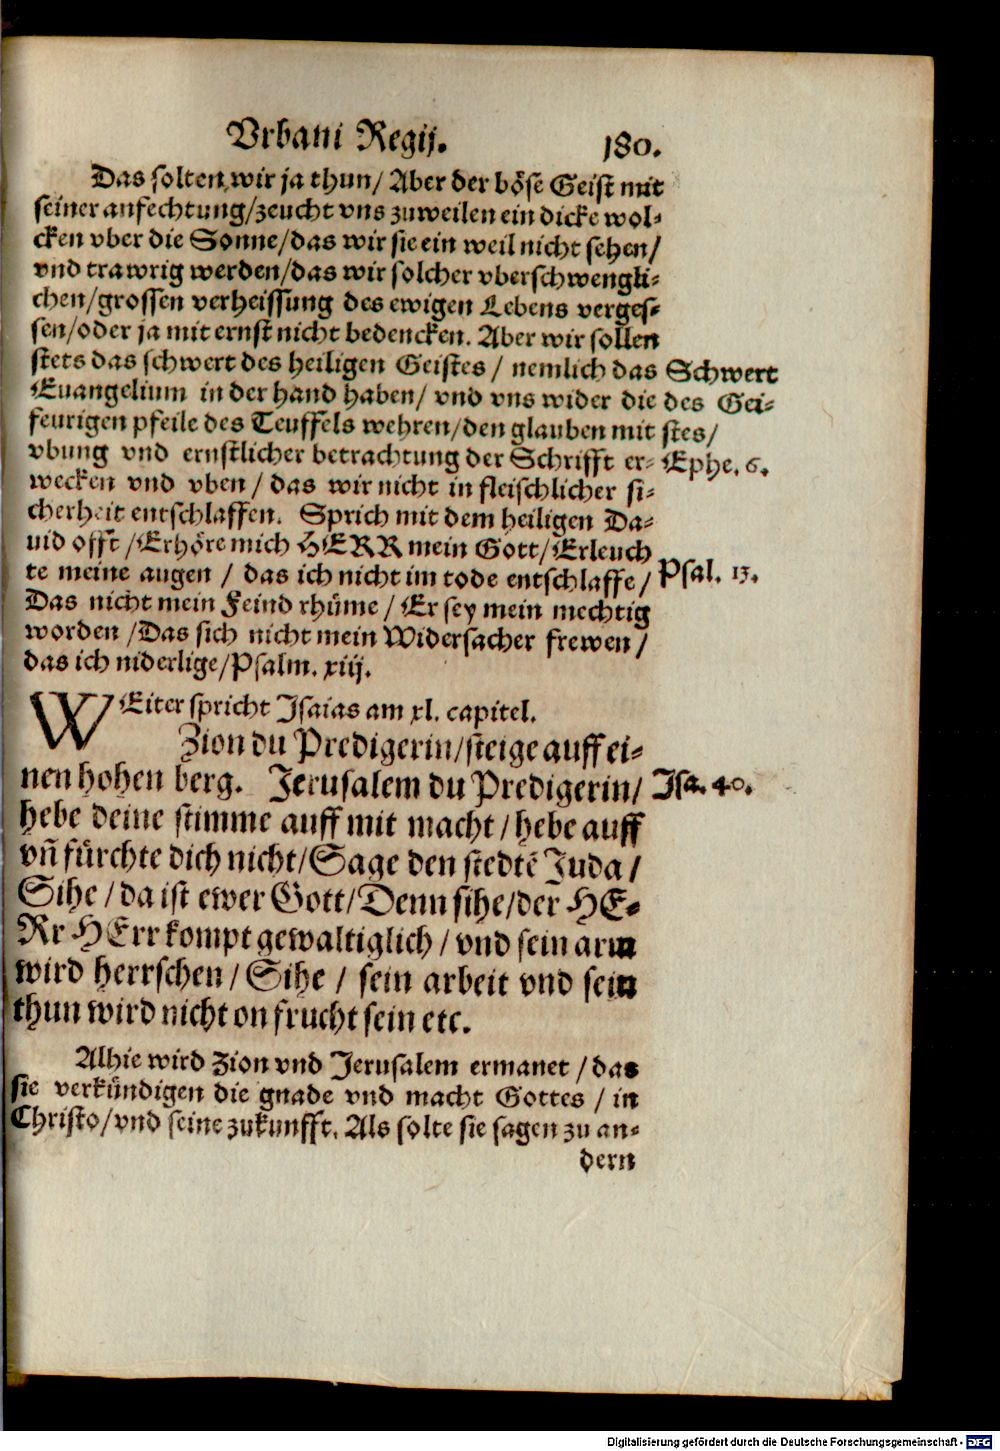 Vrbani Regij. 180.
Das solten wir ja thun/ Aber der böse Geist mit
seiner anfechtung/zeucht vns zuweilen ein dicke wol-
cken vber die Sonne/das wir sie ein weil nicht sehen/
vnd trawrig werden/das wir solcher vberschwengli-
chen/grossen verheissung des ewigen Lebens verges-
sen/oder ja mit ernst nicht bedencken. Aber wir sollen
stets das schwert des heiligen Geistes / nemlich das
Euangelium in der hand haben/ vnd vns wider die
feurigen pfeile des Teuffels wehren/den glauben mit
vbung vnd ernstlicher betrachtung der Schrifft er-
wecken vnd vben / das wir nicht in fleischlicher si-
cherheit entschlaffen. Sprich mit dem heiligen Da-
uid offt /Erhöre mich HERR mein Gott/Erleuch
te meine augen / das ich nicht im tode entschlaffe /
Das nicht mein Feind rhüme / Er sey mein mechtig
worden /Das sich nicht mein Widersacher frewen /
das ich niderlige/Psalm. xiij.
Schwert
des Gei-
stes/
Ephe. 6.
Psal. 13.
WEiter spricht Isaias am xl. capitel.
Zion du Predigerin/steige auff ei-
nen hohen berg. Jerusalem du Predigerin/
hebe deine stimme auff mit macht / hebe auff
vñ fürchte dich nicht/Sage den stedtē Juda /
Sihe / da ist ewer Gott/Denn sihe/der HE-
Rr HErr kompt gewaltiglich / vnd sein arm
wird herrschen / Sihe / sein arbeit vnd sein
thun wird nicht on frucht sein etc.
Isa. 40.
Alhie wird Zion vnd Jerusalem ermanet / das
sie verkündigen die gnade vnd macht Gottes / in
Christo/vnd seine zukunfft. Als solte sie sagen zu an-
dern
Digitalisierung gefördert durch die Deutsche Forschungsgemeinschaft - DFG